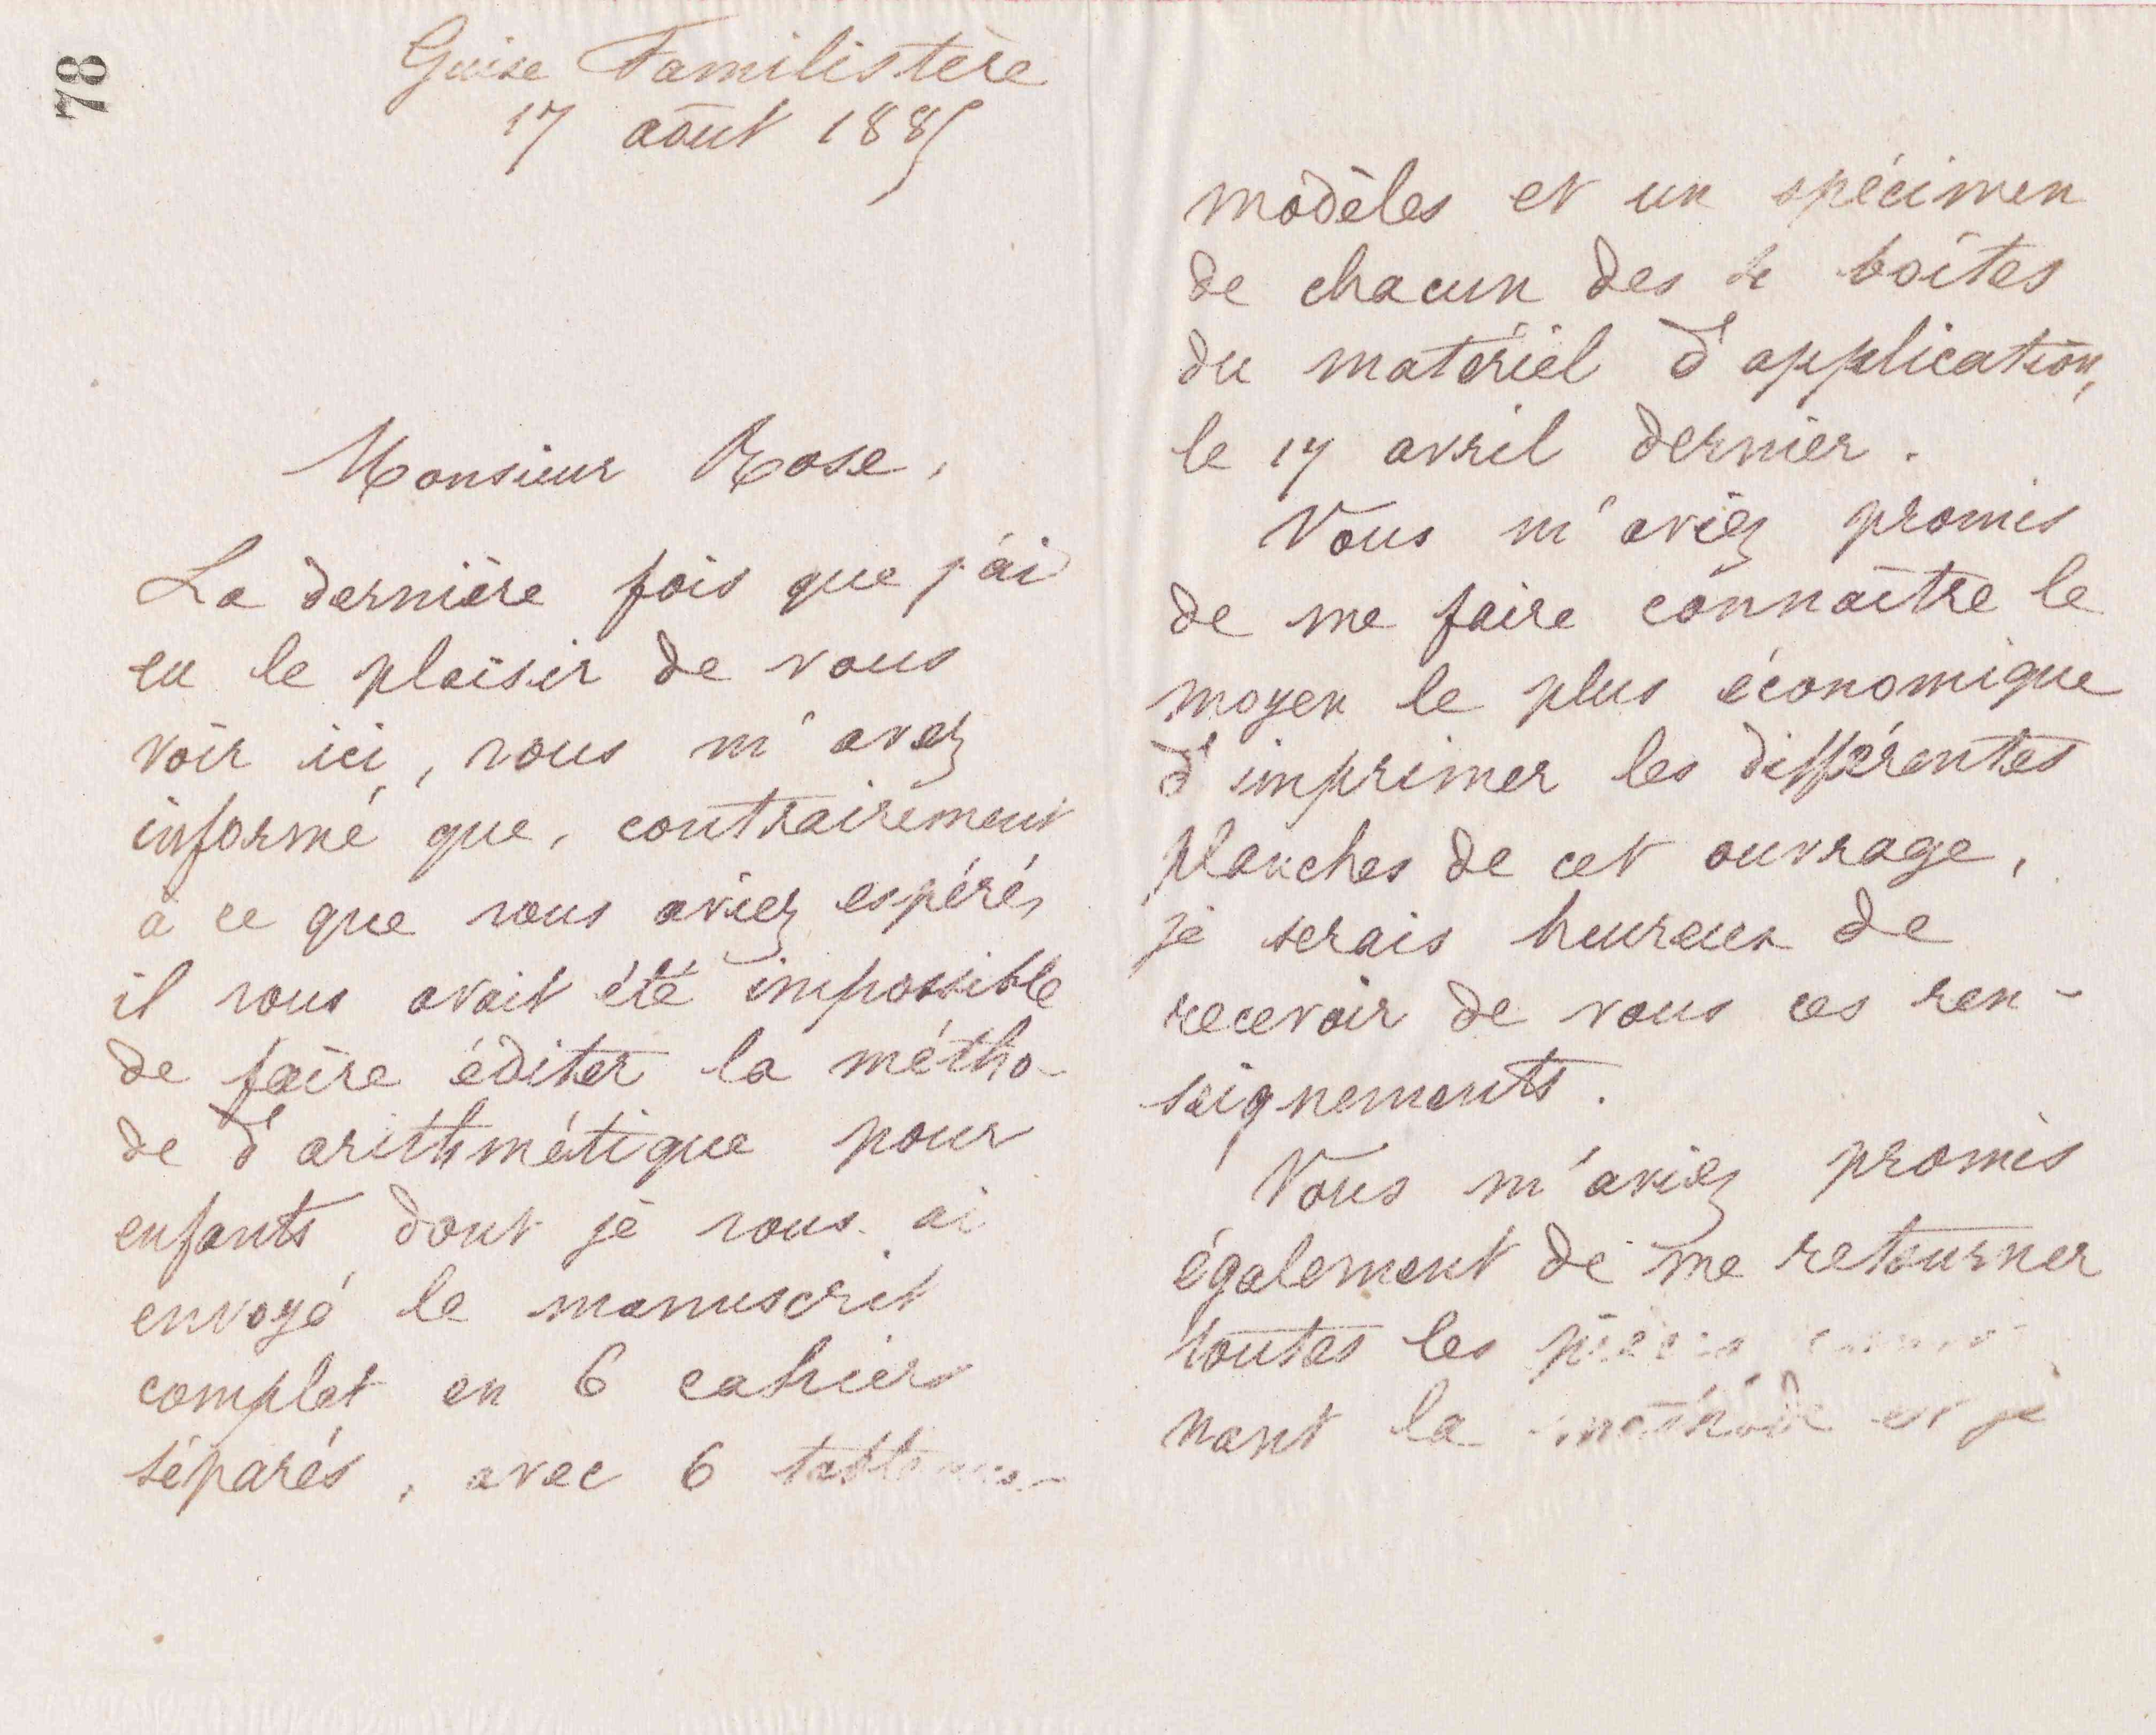 78
Guise Familistère
17 août 1885
Monsieur Rose,
La dernière fois que j'ai
eu le plaisir de vous
voir ici, vous m'avez
informé que, contrairement
à ce que vous aviez espéré,
il vous avait été impossible
de faire éditer la métho-
de d'arithmétique pour
enfants dont je vous ai
envoyé le manuscrit
complet en 6 cahiers
séparés, avec 6 tableaux-
modèles et un spécimen
de chacun des boîtes
du matériel d'application,
le 17 avril dernier.
Vous m'aviez promis
de me faire connaître le
moyen le plus économique
d'imprimer les différentes
planches de cet ouvrage,
je serais heureux de
recevoir de vous ces ren-
seignements.
Vous m'aviez promis
également de me retourner
toutes les pièces
nant la méthode et je